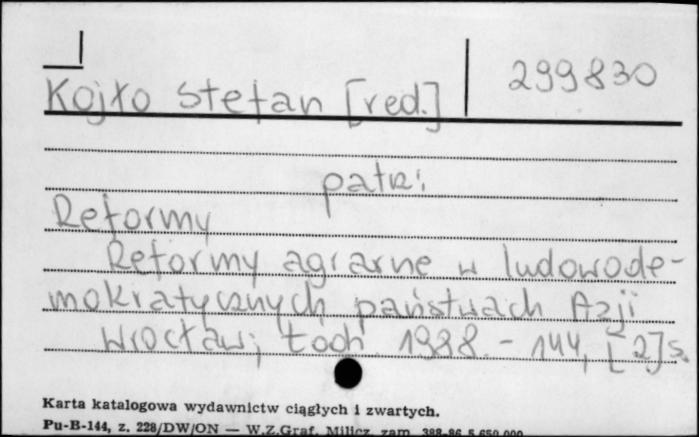 Kojło Stefan [red.] 299830
patrz:
Reformy
Reformy agrarne w ludowode-
mokratycznych państwach Azji
Wrocław; 1988. - 144, [2] s.
Karta katalogowa wydawnictw ciągłych i zwartych.
Pu-B-144, z. 228/DW/ON — W.Z.Graf. Milicz, zam. 388-86 5.650.000